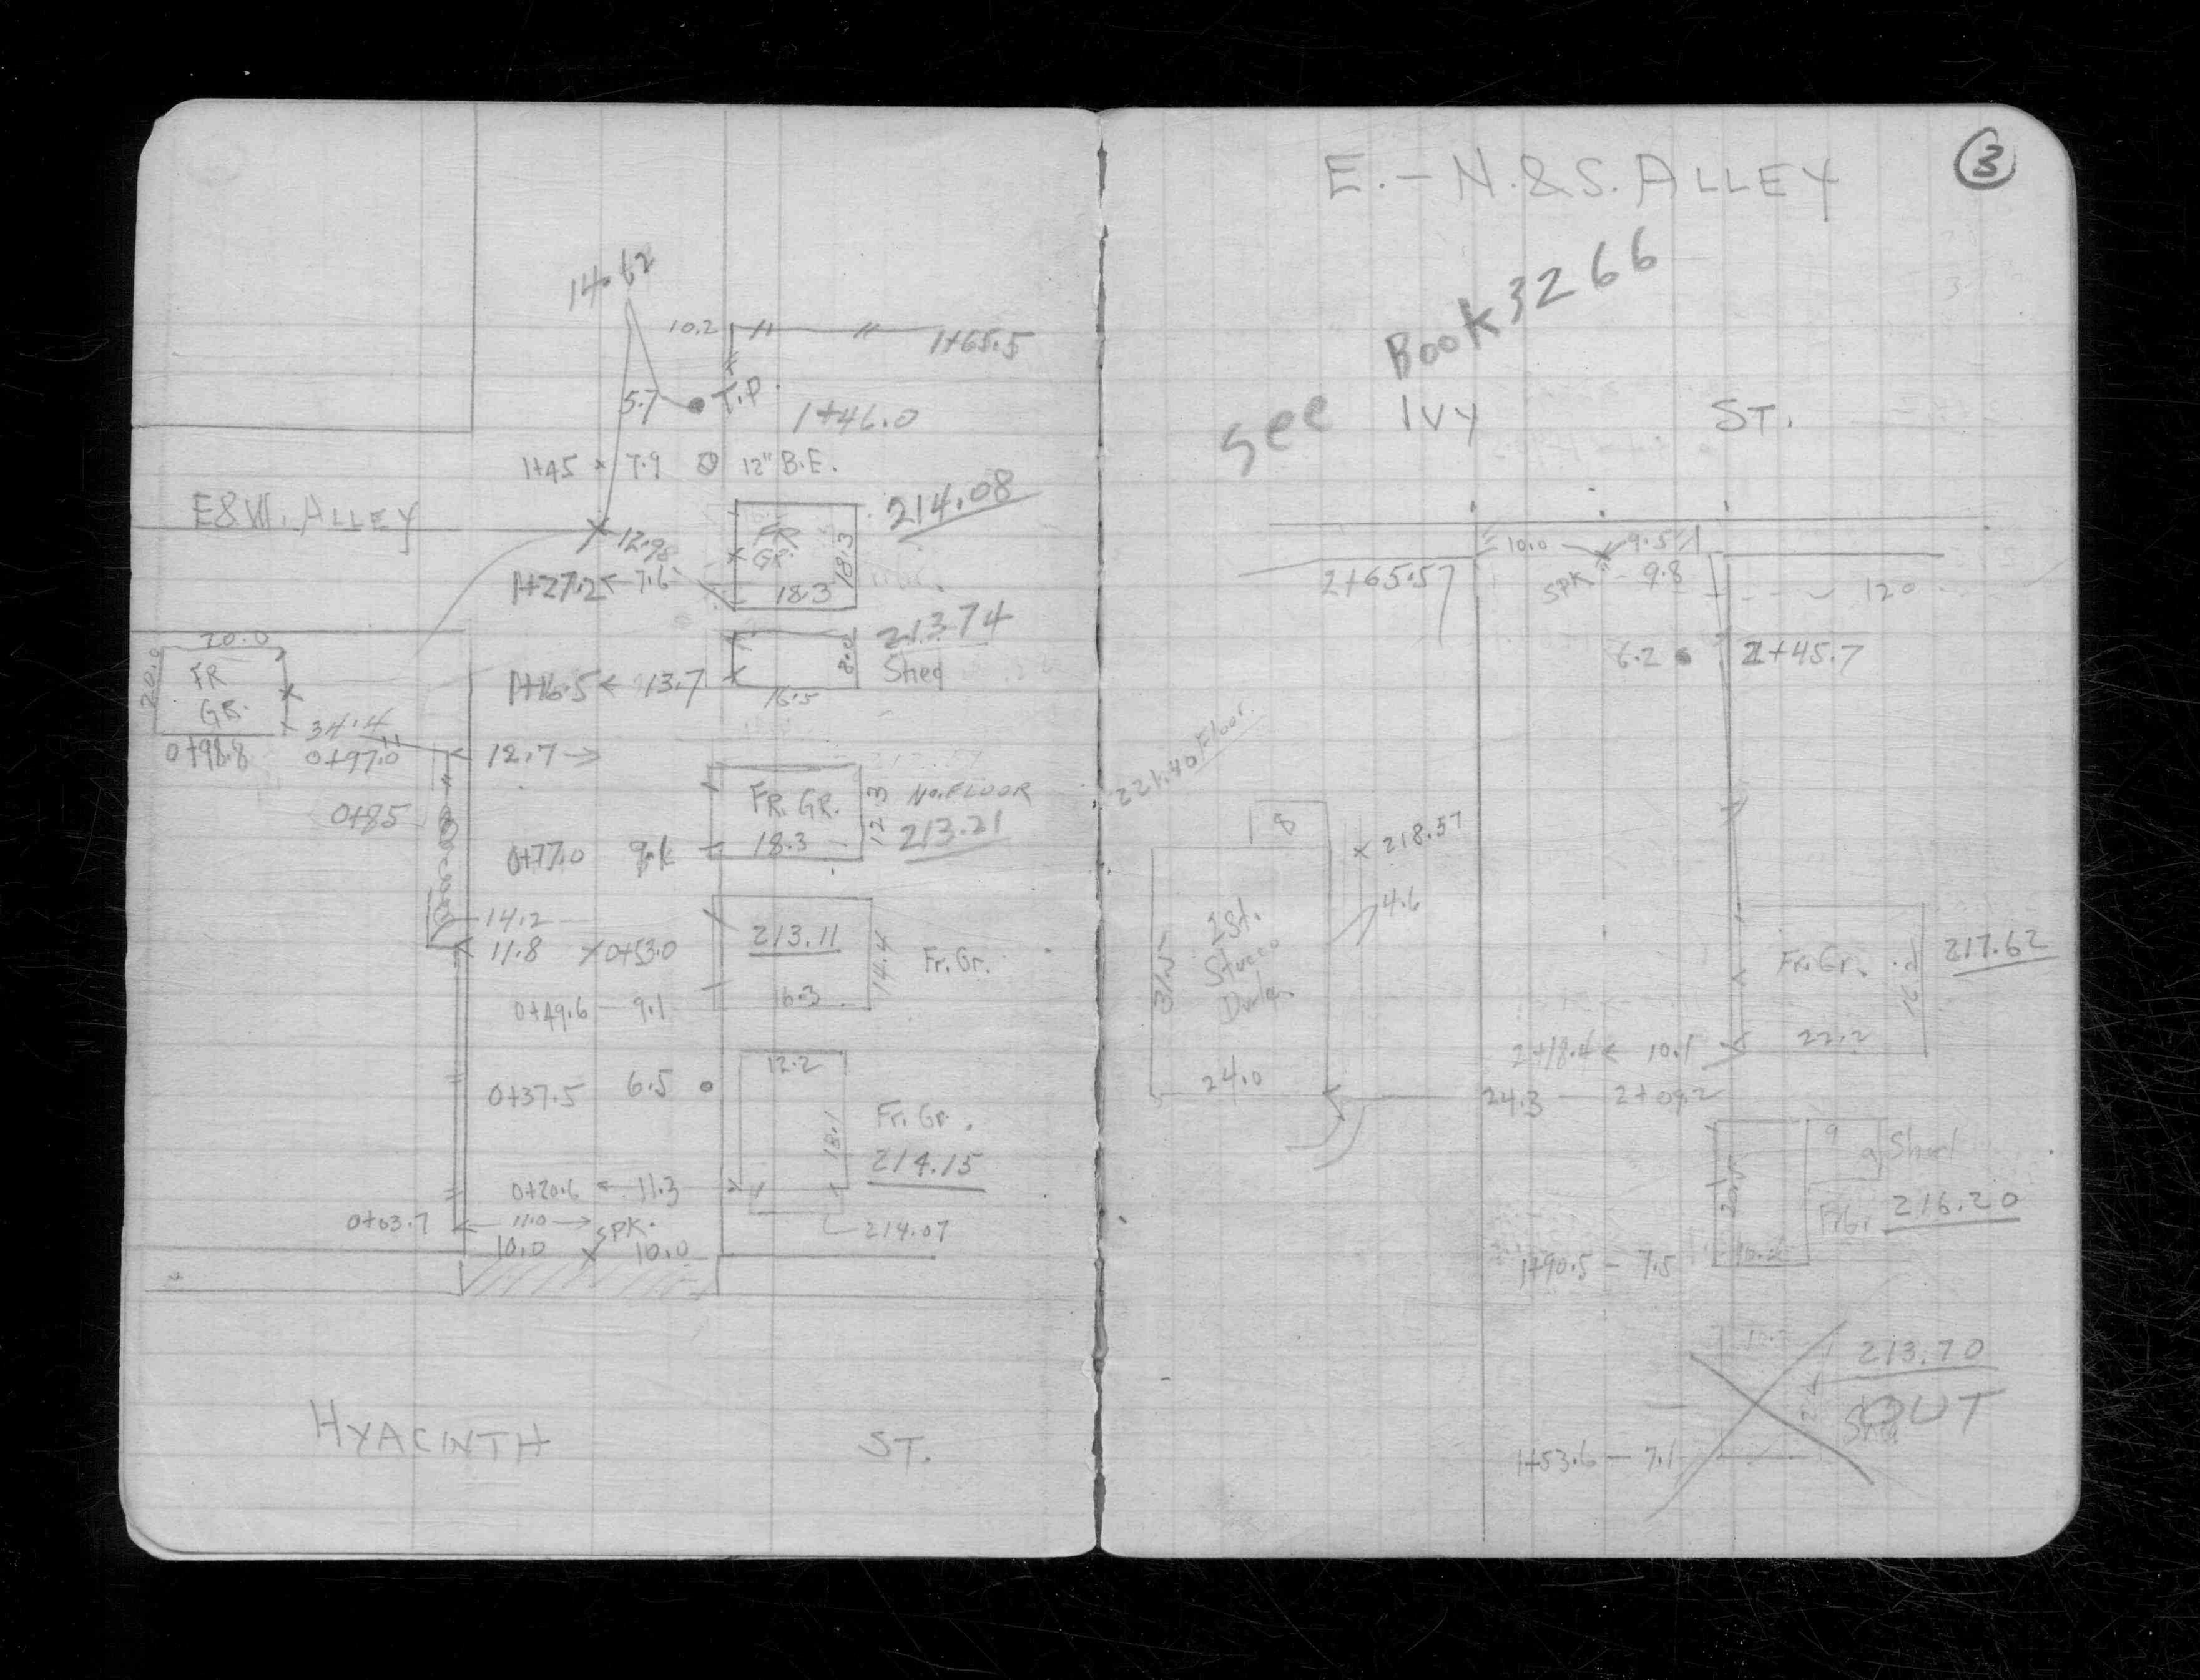 14.62
10.2
1+65.5
5.7 T.P.
1+46.0
1+45 7.9 12" B.E.
E&W. ALLEY
214.08
12.98
FR
GR.
18.3
18.3
1+27.2 7.6
213.74
Shed
8.0
16.5
1+16.5 13.7
20.0
20.0
FR
GR.
34.4
0+98.8
0+97.0
12.7
0+85
FR. GR.
18.3
12.3
No. FLOOR
213.21
0+77.0
14.2
11.8 0+53.0
213.11
14.4
Fr. Gr.
16.3
0+49.6 9.1
12.2
18.1
0+37.5 6.5
Fr. Gr.
214.15
0+20.6 11.3
0+03.7
11.0 SPK.
214.07
10.0 10.0
HYACINTH ST.
3
E. - N. & S. ALLEY
See Book 3266
IVY ST.
10.0 9.5
2+65.57
SPK 9.8
120
6.2 2+45.7
221.40 Floor
18
218.57
4.6
2 St.
Stucco
24.0
Fr. Gr.
217.62
22.2
2+18.4 10.1
24.3 2+09.2
9
9 Shed
216.20
1+90.5 - 7.5
213.70
OUT
Shed
1+53.6 - 7.1